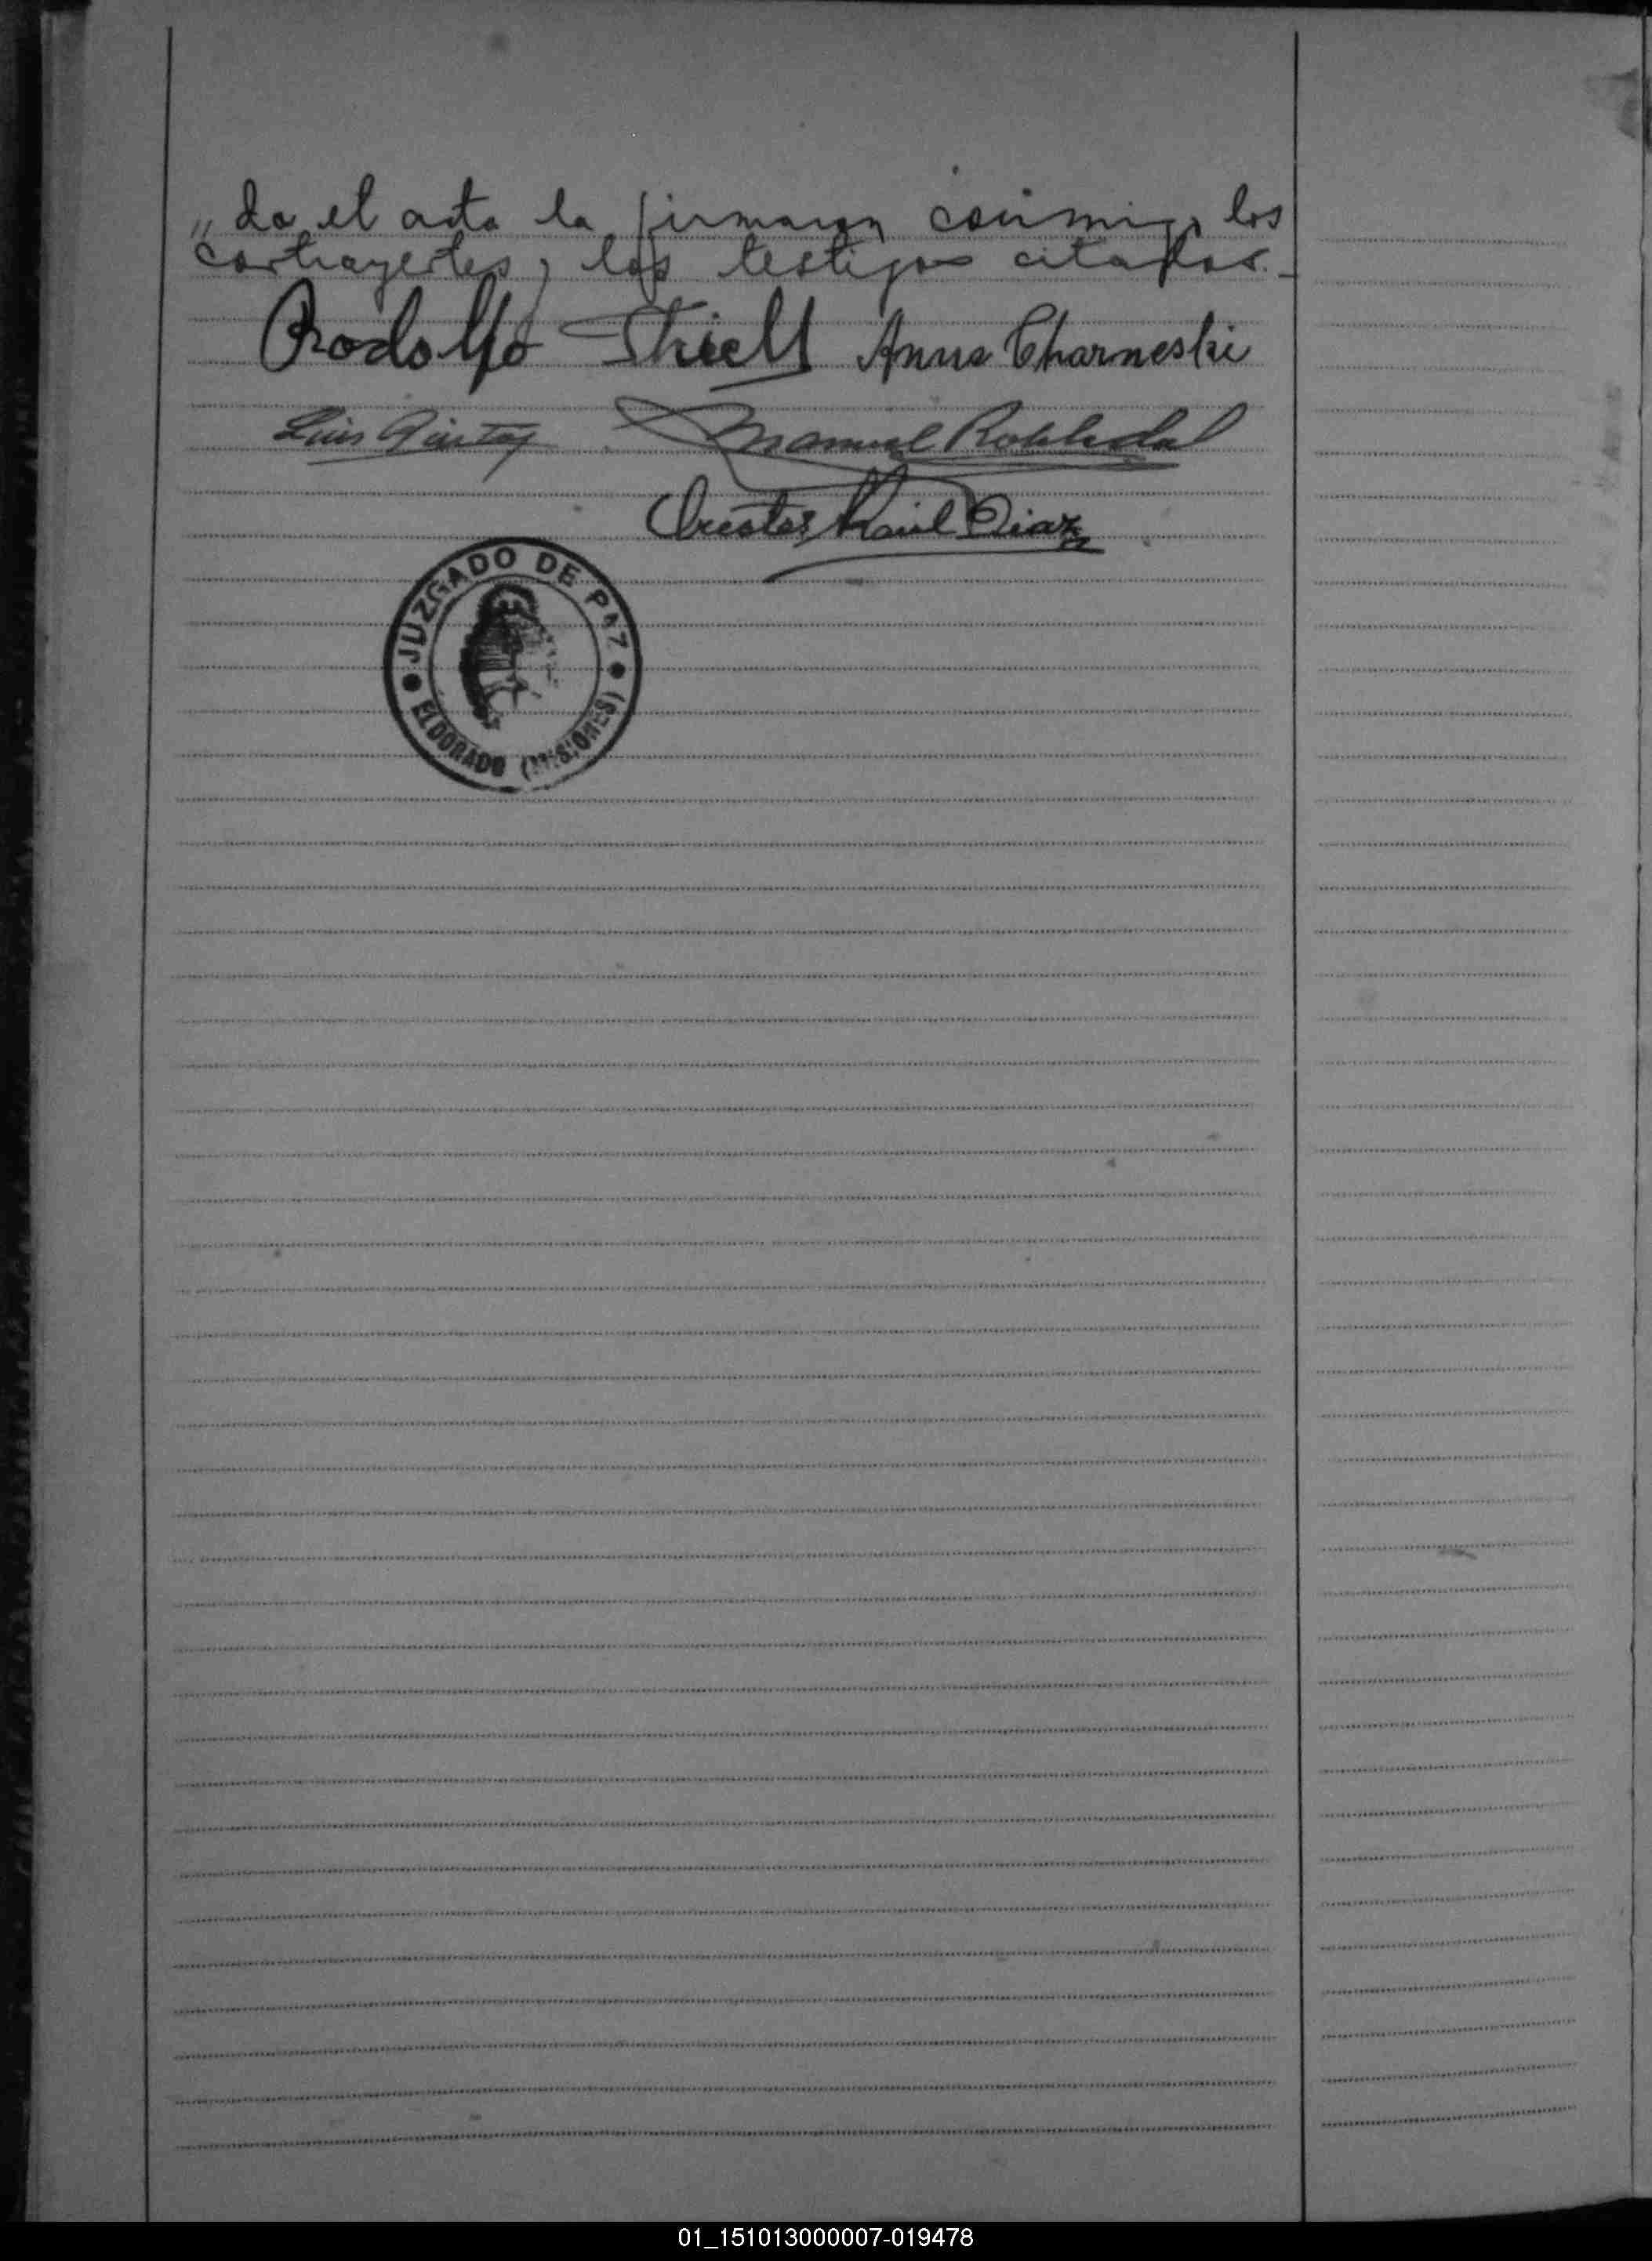 „ da el acta la firmaron conmigo los
contrayentes y los testigos citados.-
Rodolfo Thiell Anna Charneski
Luis Manuel Robledal
Orestes Raúl Diaz
JUZGADO DE PAZ
ELDORADO (MISIONES)
01_151013000007-019478